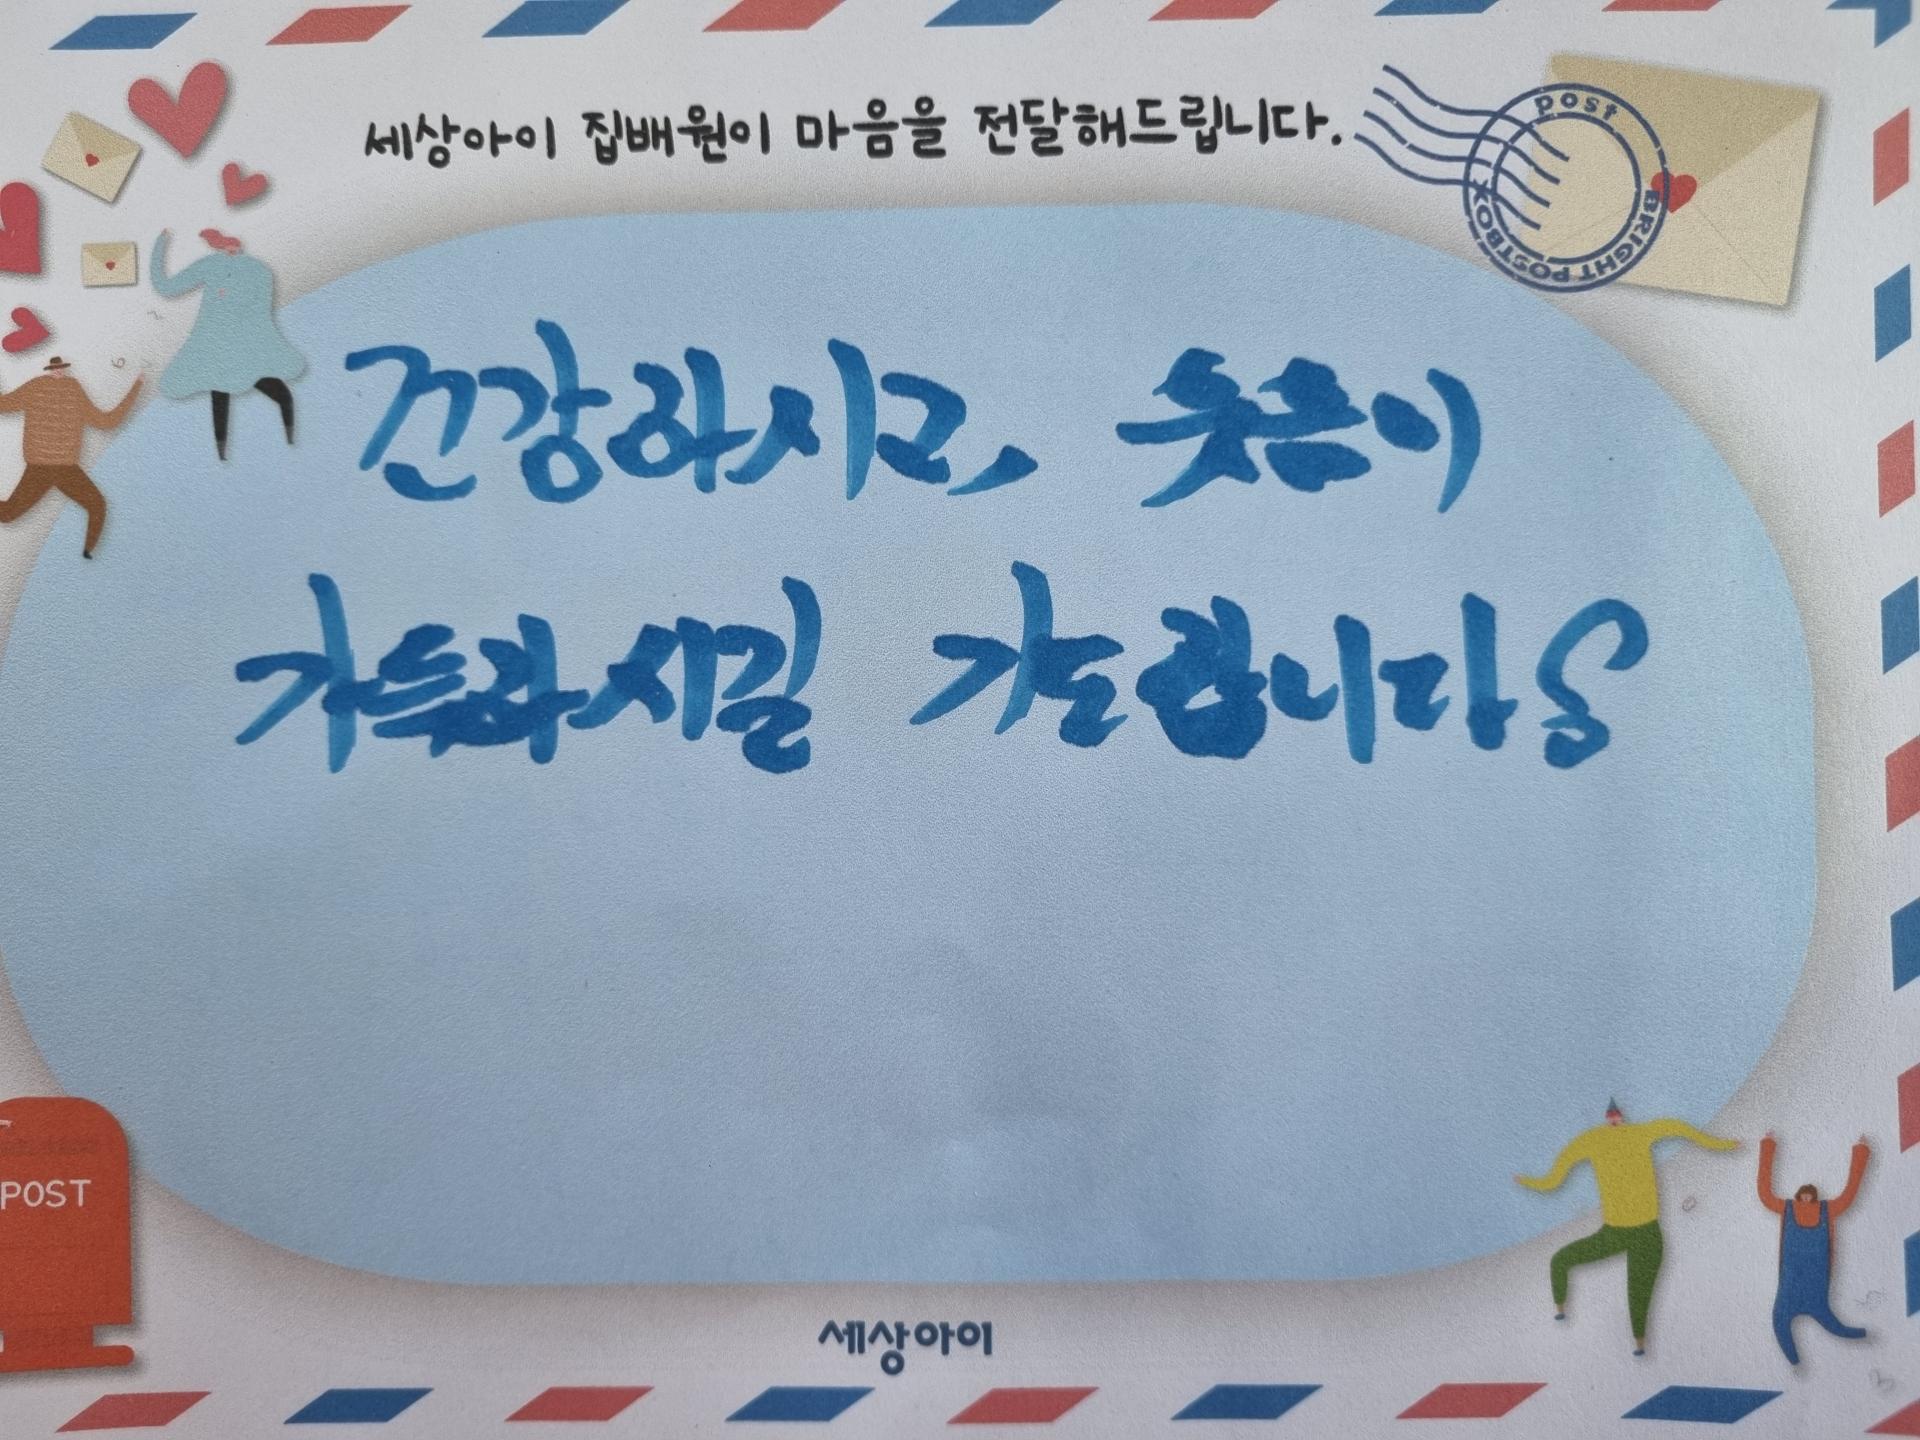 세상아이 집배원이 마음을 전달해드립니다.
post
BRIGHT POSTBOX
건강하시고, 웃음이
가득하시길 기도합니다
POST
세상아이